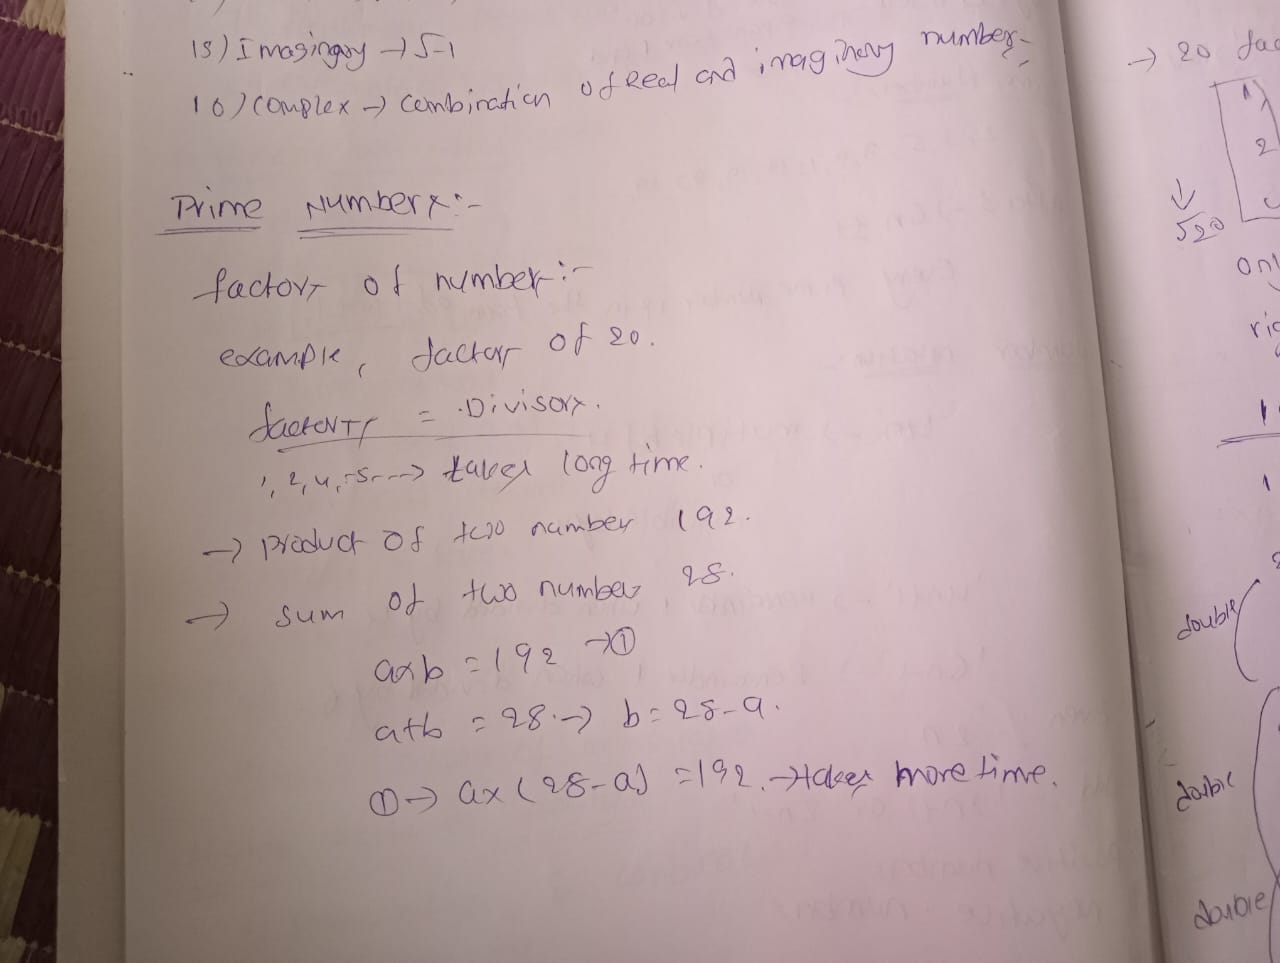 15) Imaginary → √-1
16) complex → combination of Real and imaginary number.
Prime Numbers:-
factors of number:-
example, factors of 20.
factors = Divisors.
1, 2, 4, 5 --→ takes long time.
→ product of two number 192.
→ sum of two number 28.
axb = 192 → ①
a+b = 28. → b = 28-a.
① → ax(28-a) = 192. → takes more time.
→ 20 fac
1)
2
↓
√20
onl
double
double
double